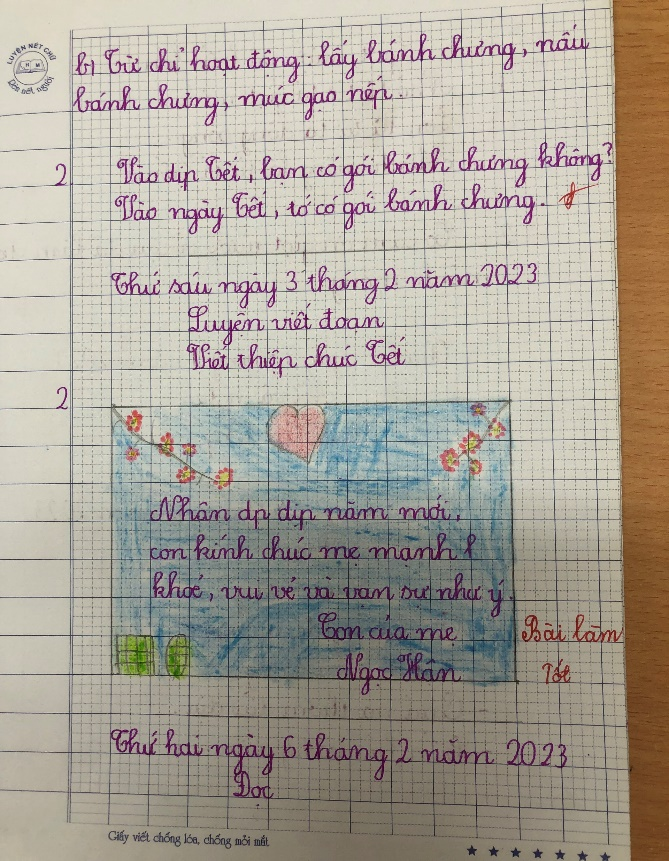 LUYỆN NÉT CHỮ
Rèn nết người
b) Từ chỉ hoạt động: lấy bánh chưng, nấu
bánh chưng, múc gạo nếp.
2. Vào dịp Tết, bạn có gói bánh chưng không?
Vào ngày Tết, tớ có gói bánh chưng.
Thứ sáu ngày 3 tháng 2 năm 2023
Luyện viết đoạn
Viết thiệp chúc Tết
2
Nhân dp dịp năm mới,
con kính chúc mẹ mạnh
khoẻ, vui vẻ và vạn sự như ý.
Con của mẹ
Ngọc Hân
Bài làm
Tốt
Thứ hai ngày 6 tháng 2 năm 2023
Đọc
Giấy viết chống lóa, chống mỏi mắt